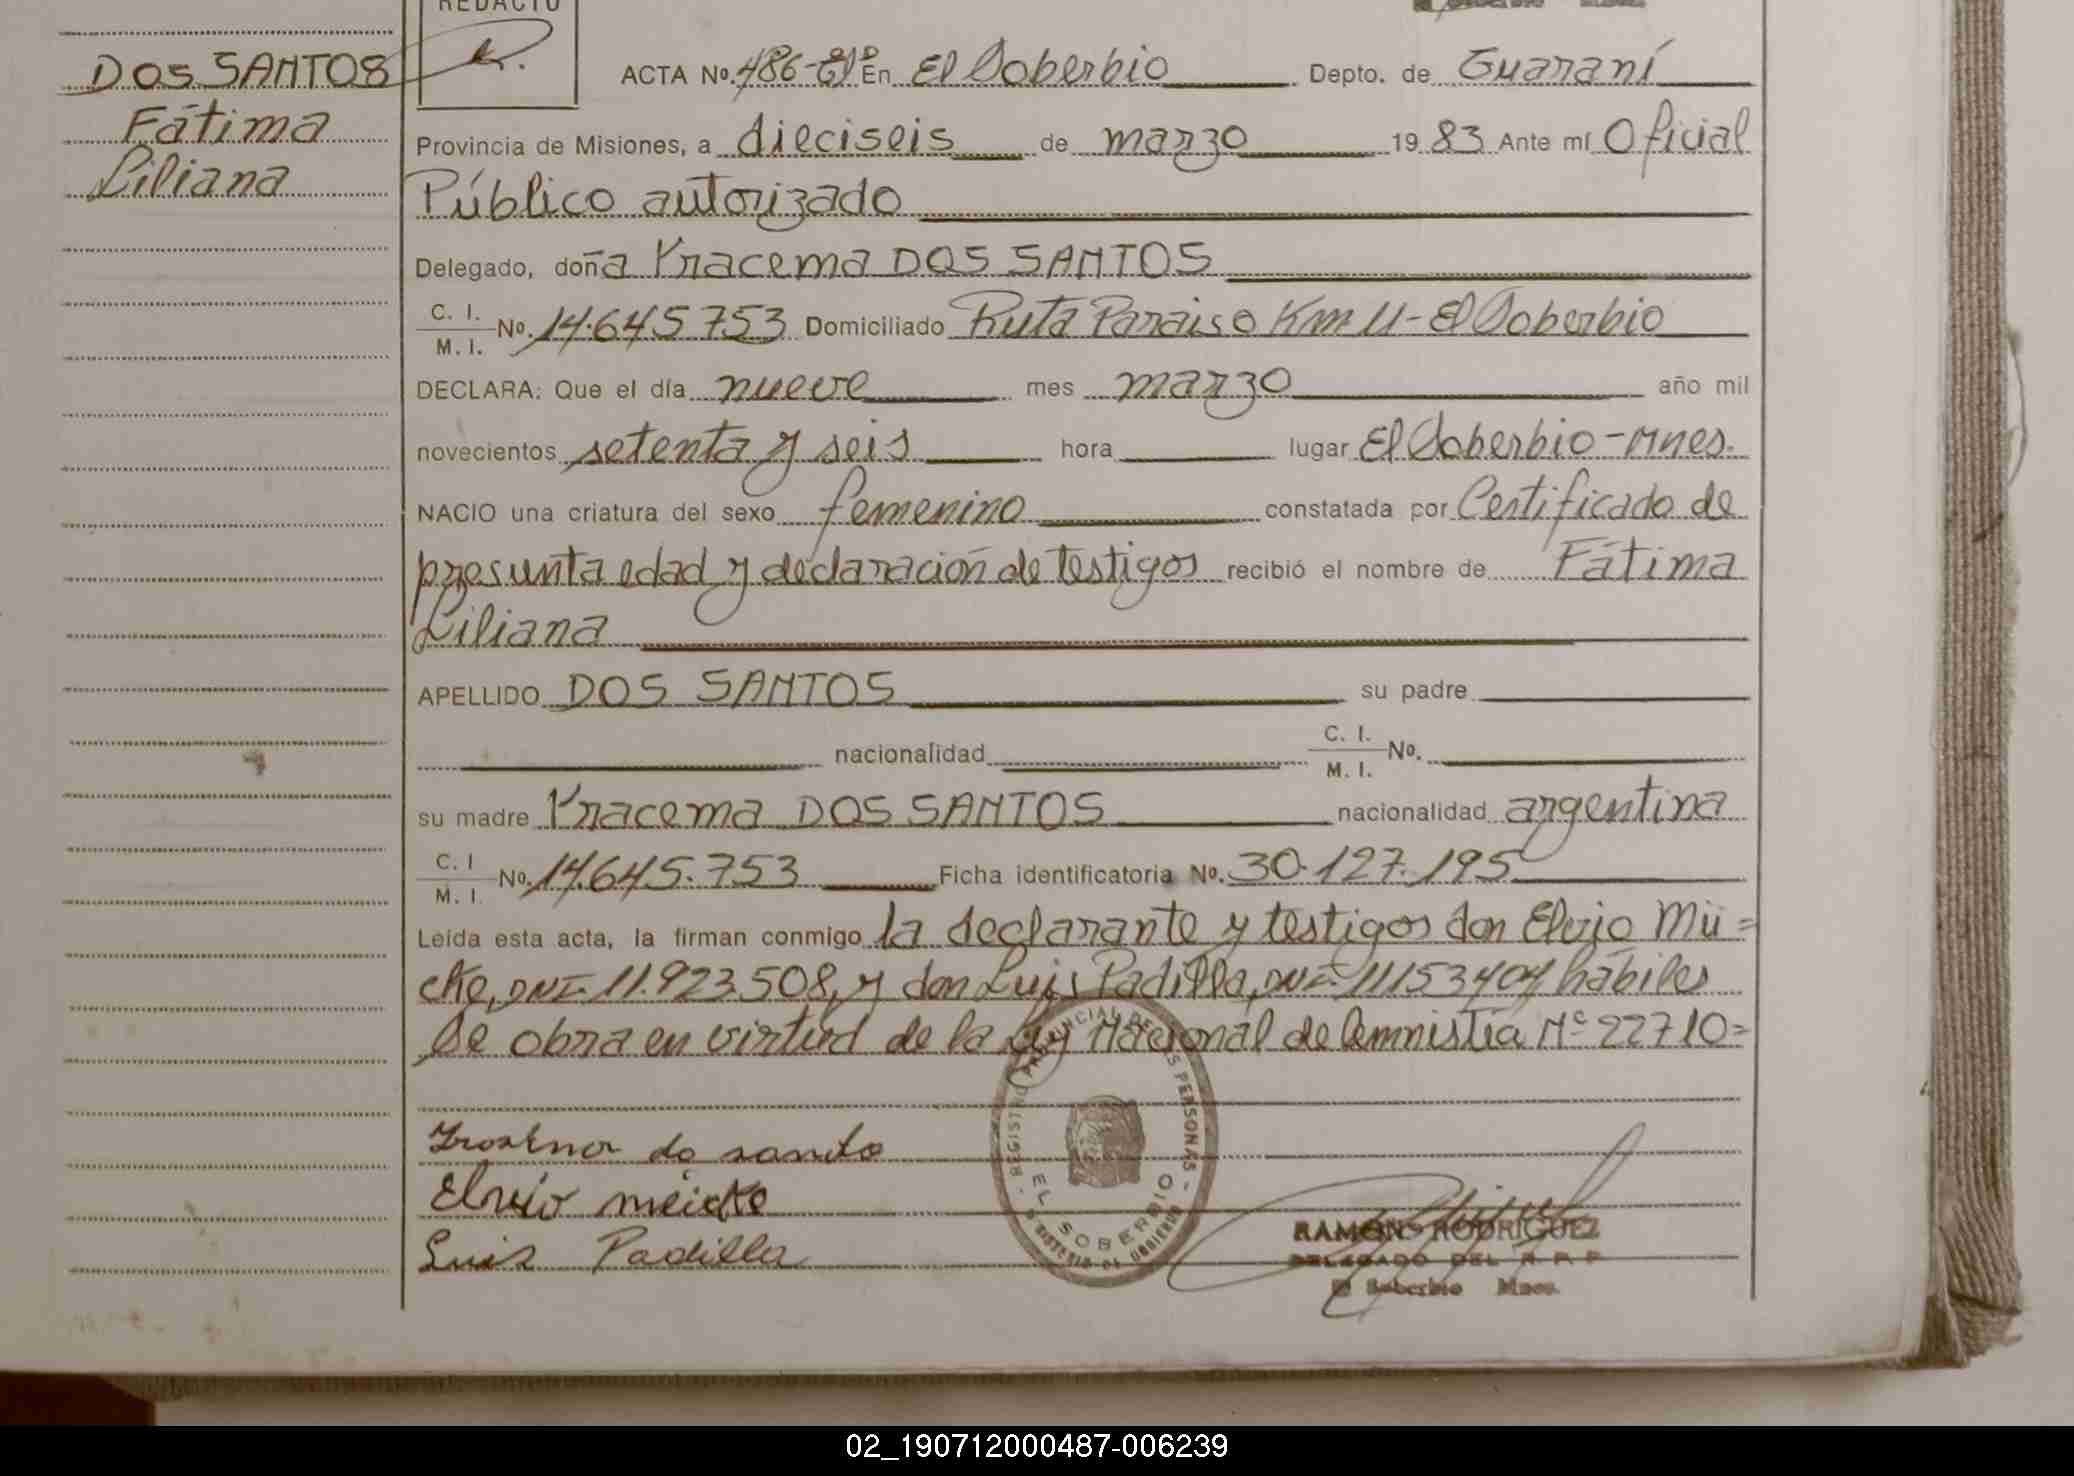 REDACTO
DOS SANTOS
Fátima
Liliana
ACTA Nº. 486- En El Soberbio Depto. de Guaraní
Provincia de Misiones, a dieciseis de marzo 1983 Ante mí Oficial
Público autorizado
Delegado, doña Yracema DOS SANTOS
C. I.
M. I. Nº. 14.645.753 Domiciliado Ruta Paraiso Km 11-El Soberbio
DECLARA: Que el día nueve mes marzo año mil
novecientos setenta y seis hora lugar El Soberbio-Mnes.
NACIO una criatura del sexo femenino constatada por Certificado de
presunta edad y declaración de testigos recibió el nombre de Fátima
Liliana
APELLIDO DOS SANTOS su padre
nacionalidad C. I.
M. I. Nº.
su madre Yracema DOS SANTOS nacionalidad argentina
C. I
M. I. Nº. 14.645.753 Ficha identificatoria Nº. 30.127.195
Leída esta acta, la firman conmigo la declarante y testigos don Elvio Mü=
cke, DNI. 11.923.508, y don Luis Padilla, DNI. 11153404 hábiles
Se obra en virtud de la Ley Nacional de Amnistía Nº 22710=
REGISTRO PROVINCIAL DE LAS PERSONAS
EL SOBERBIO
MINISTERIO DE GOBIERNO
Elvio
Luis Padilla
RAMON S RODRIGUEZ
DELEGADO DEL R. P. P
El Soberbio Mnes.
02_190712000487-006239